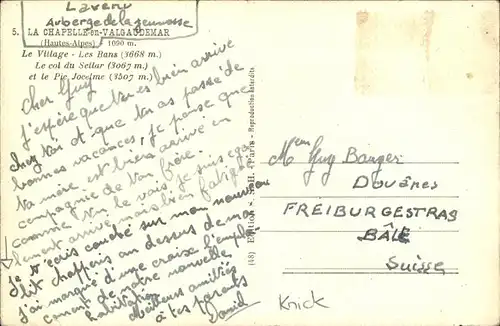 Lavenu
Auberge de la jeunesse
5. LA CHAPELLE-en-VALGAUDEMAR
(Hautes-Alpes) 1090 m.
Le Village - Les Bans (3668 m.)
Le col du Sellar (3067 m.)
et le Pic Jocelme (3507 m.)
Cher Guy
J'espère que tu es bien arrivé
chez toi et que tu as passé de
bonnes vacances, je pense que
ta mère est bien arrivé en
compagnie de ton frère.
Comme tu le vois, je suis éga
lement arrivé mais bien fatigué
je t'écris couché sur mon nouveau
lit
au dessus de mon
j'ai marqué d'une croix l'empla
cement de notre nouvelle
habitation
Meilleurs amitiés
à tes parents
Daniel
Guy Banger
Douânes
FREIBURGESTRAS
BÂLE
Suisse
Knick
Reproduction interdite